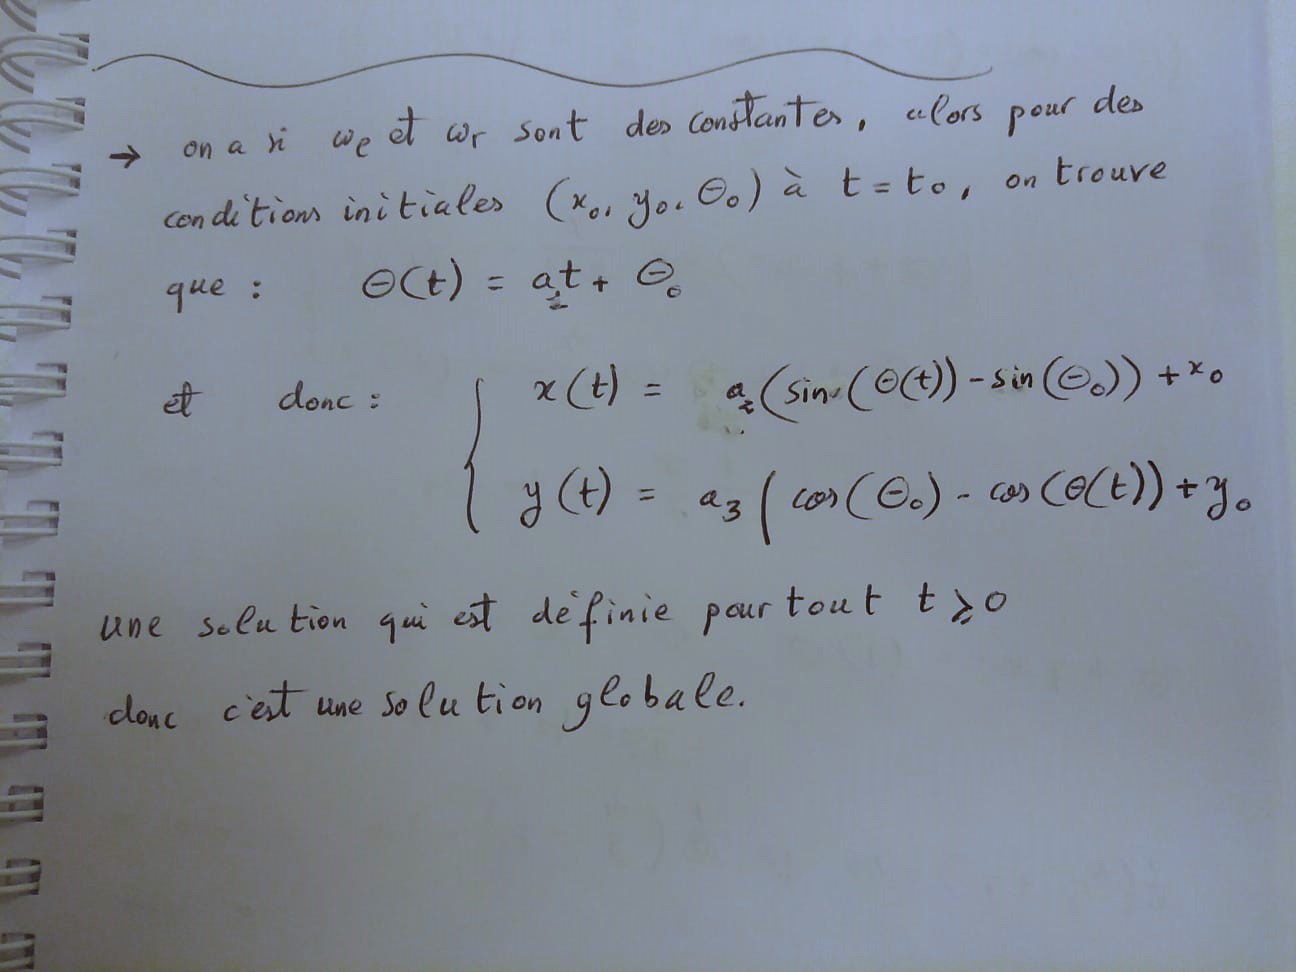 → on a si ωe et ωr sont des constantes, alors pour des
conditions initiales (x₀, y₀, Θ₀) à t = t₀, on trouve
que : Θ(t) = a₁t + Θ₀
et donc : { x(t) = a₂(sin(Θ(t)) - sin(Θ₀)) + x₀
y(t) = a₃(cos(Θ₀) - cos(Θ(t)) + y₀
une solution qui est définie pour tout t ⩾ 0
donc c'est une solution globale.